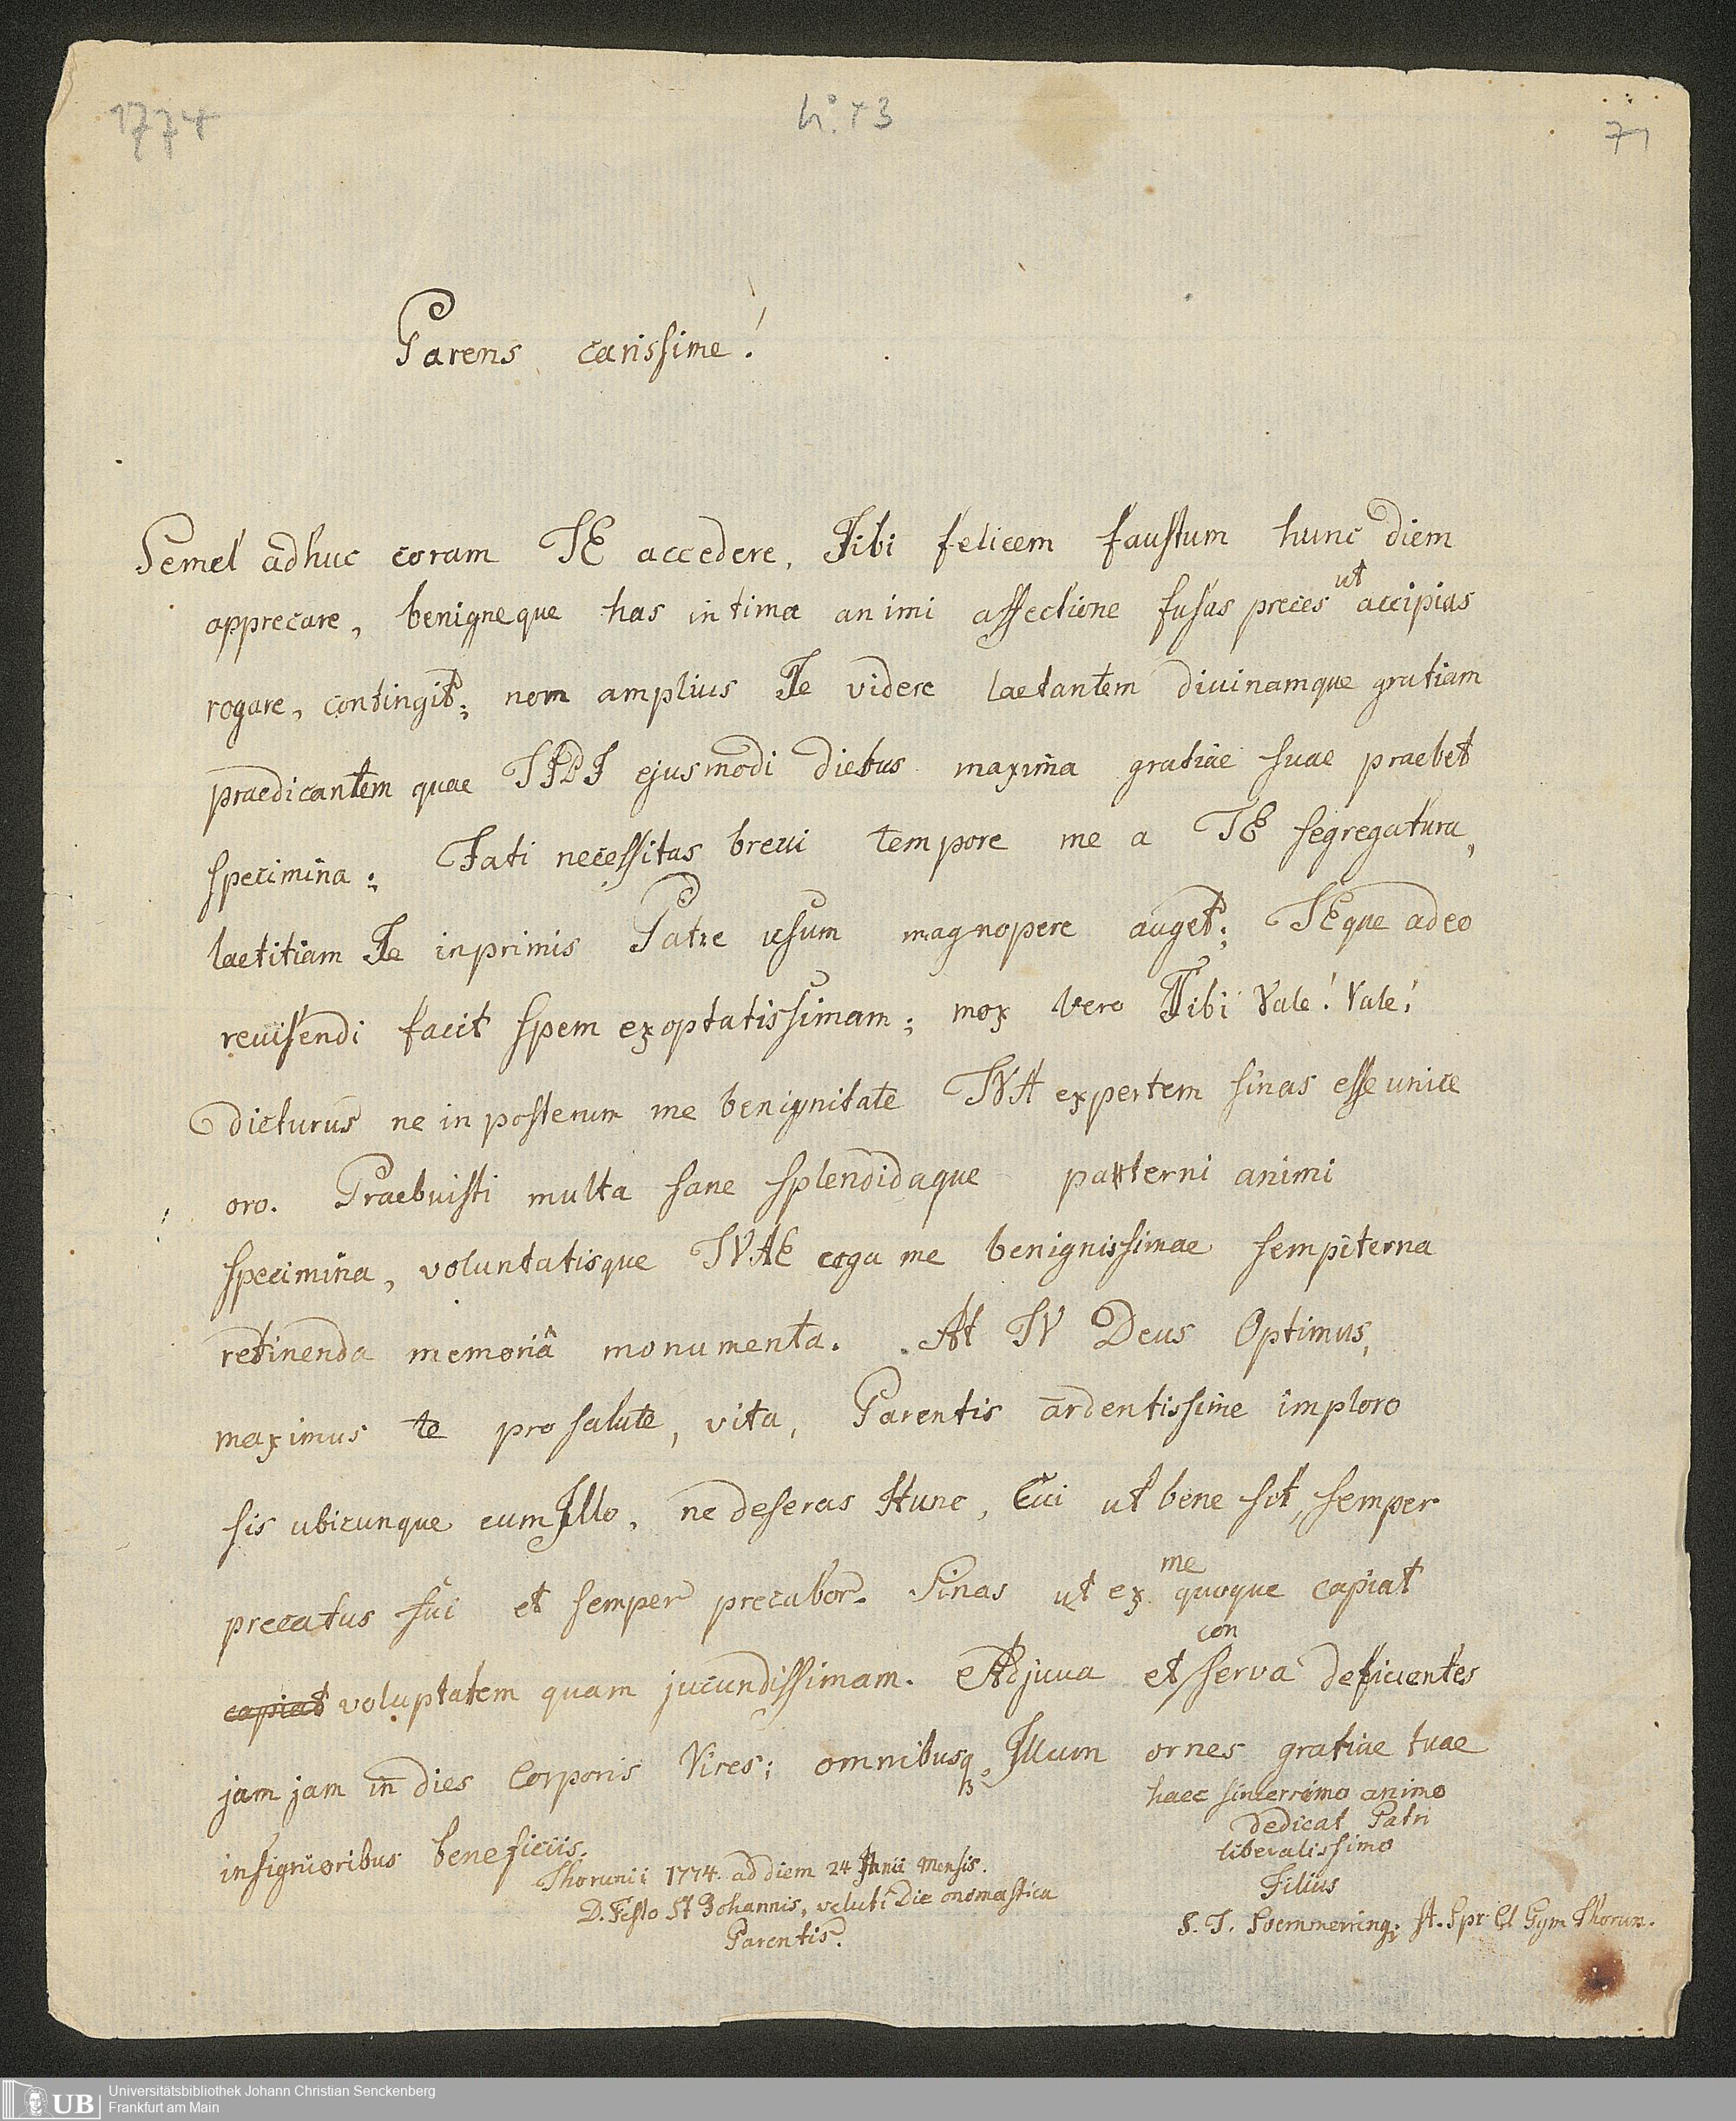 1774
71
Parens carissime!
Semel adhuc coram TE accedere, Tibi felicem faustum hunc diem
apprecare, benigneque has intima animi affectione fusas preces ut accipias
rogare, contingit; non amplius Te videre laetantem divinamque gratiam
praedicantem quae TIBI ejusmodi diebus maxima gratiae suae praebet
specimina: Fati necessitas brevi tempore me a TE segregatura,
laetitiam Te inprimis Patre usum magnopere auget; TEque adeo
revisendi facit spem exoptatissimam; mox vero Tibi Vale! Vale!
dicturus ne in posterum me benignitate TVA expertem sinas esse unice
oro. Praebuisti multa sane splendidaque paterni animi
specimina, voluntatisque TVAE erga me benignissimae sempiterna
retinenda memoriâ monumenta. At TV Deus Optimus,
maximus te pro salute, vita, Parentis ardentissime imploro
sis ubicunque cum Illo, ne deseras Hunc, Cui ut bene sit, semper
precatus fui et semper precabor. Sinas ut ex me quoque capiat
capiat voluptatem quam jucundissimam. Adjuva et conserva deficientes
jam jam in dies Corporis Vires; omnibusq Illum ornes gratiae tuae
insignioribus beneficiis.
haec sincerrimo animo
dedicat Patri
liberalissimo
Filius
S. T. Soemmerring; A. Spr Cl Gym Thorun.
Thorunii 1774. ad diem 24 Junii Mensis.
D. Festo St Johannis, veluti Die onomastica
Parentis.
UB
Universitätsbibliothek Johann Christian Senckenberg
Frankfurt am Main